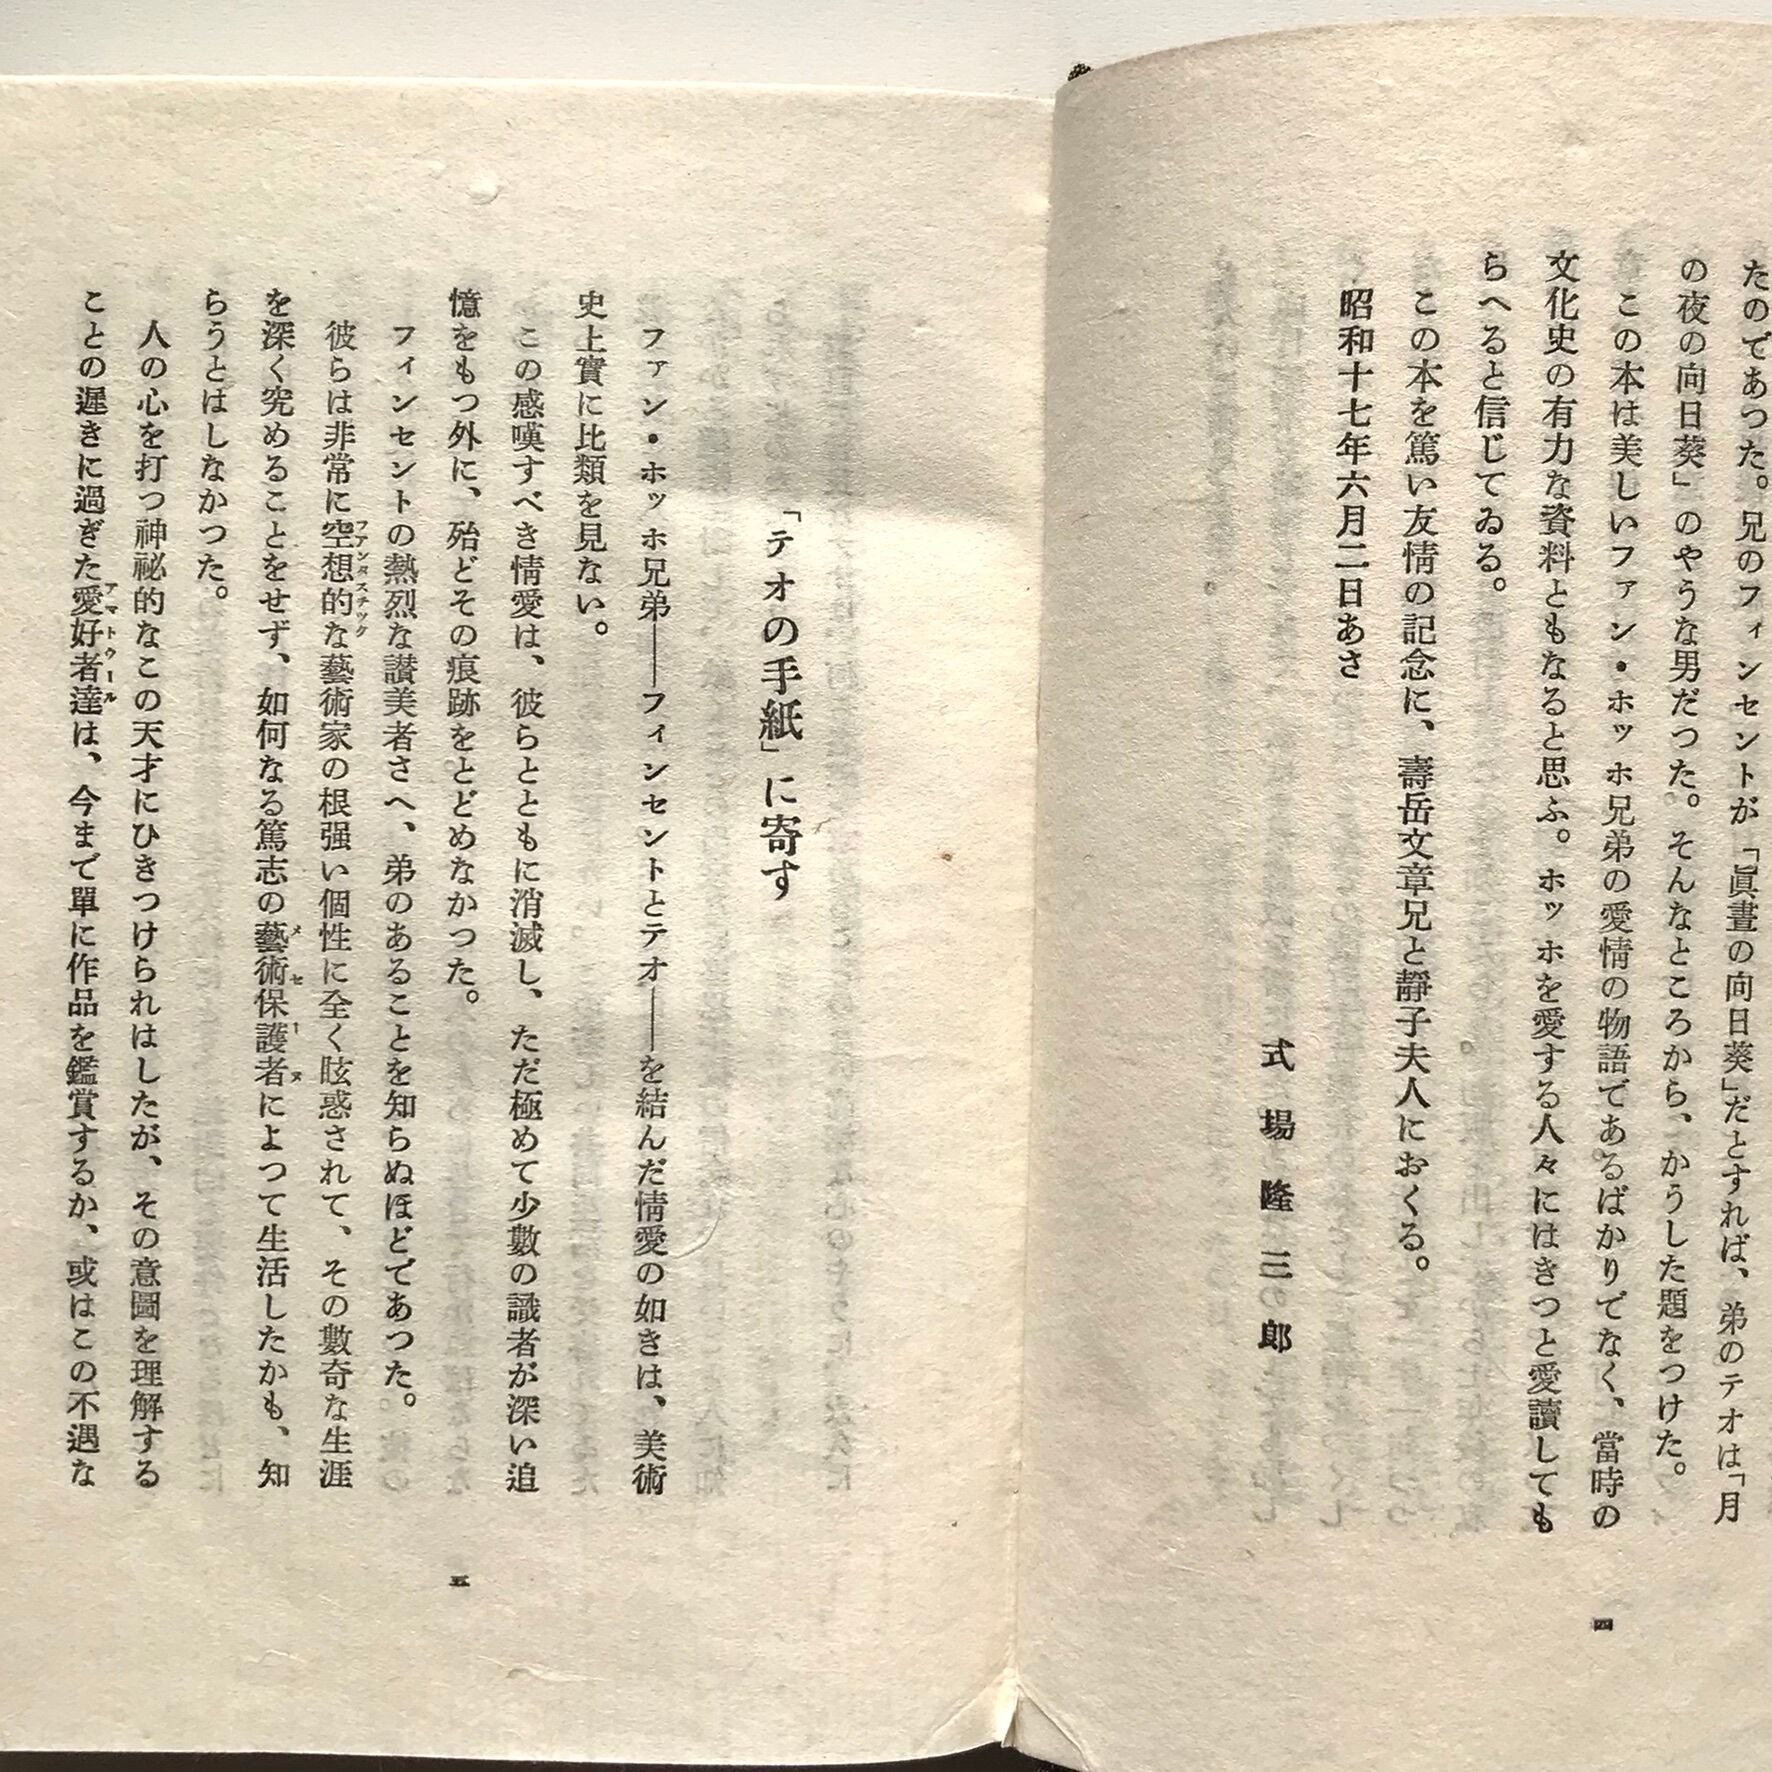 たのであつた。兄のフィンセントが「眞晝の向日葵」だとすれば、弟のテオは「月
の夜の向日葵」のやうな男だつた。そんなところから、かうした題をつけた。
この本は美しいファン・ホッホ兄弟の愛情の物語であるばかりでなく、當時の
文化史の有力な資料ともなると思ふ。ホッホを愛する人々にはきつと愛讀しても
らへると信じてゐる。
この本を篤い友情の記念に、壽岳文章兄と靜子夫人におくる。
昭和十七年六月二日あさ
式場隆三郎
四
「テオの手紙」に寄す
ファン・ホッホ兄弟――フィンセントとテオ――を結んだ情愛の如きは、美術
史上實に比類を見ない。
この感嘆すべき情愛は、彼らとともに消滅し、ただ極めて少數の識者が深い追
憶をもつ外に、殆どその痕跡をとどめなかつた。
フィンセントの熱烈な讃美者さへ、弟のあることを知らぬほどであつた。
彼らは非常に空想的な藝術家の根强い個性に全く眩惑されて、その數奇な生涯
ファンタスチック
を深く究めることをせず、如何なる篤志の藝術保護者によつて生活したかも、知
メセーヌ
らうとはしなかつた。
人の心を打つ神祕的なこの天才にひきつけられはしたが、その意圖を理解する
ことの遲きに過ぎた愛好者達は、今まで單に作品を鑑賞するか、或はこの不遇な
アマトウール
五